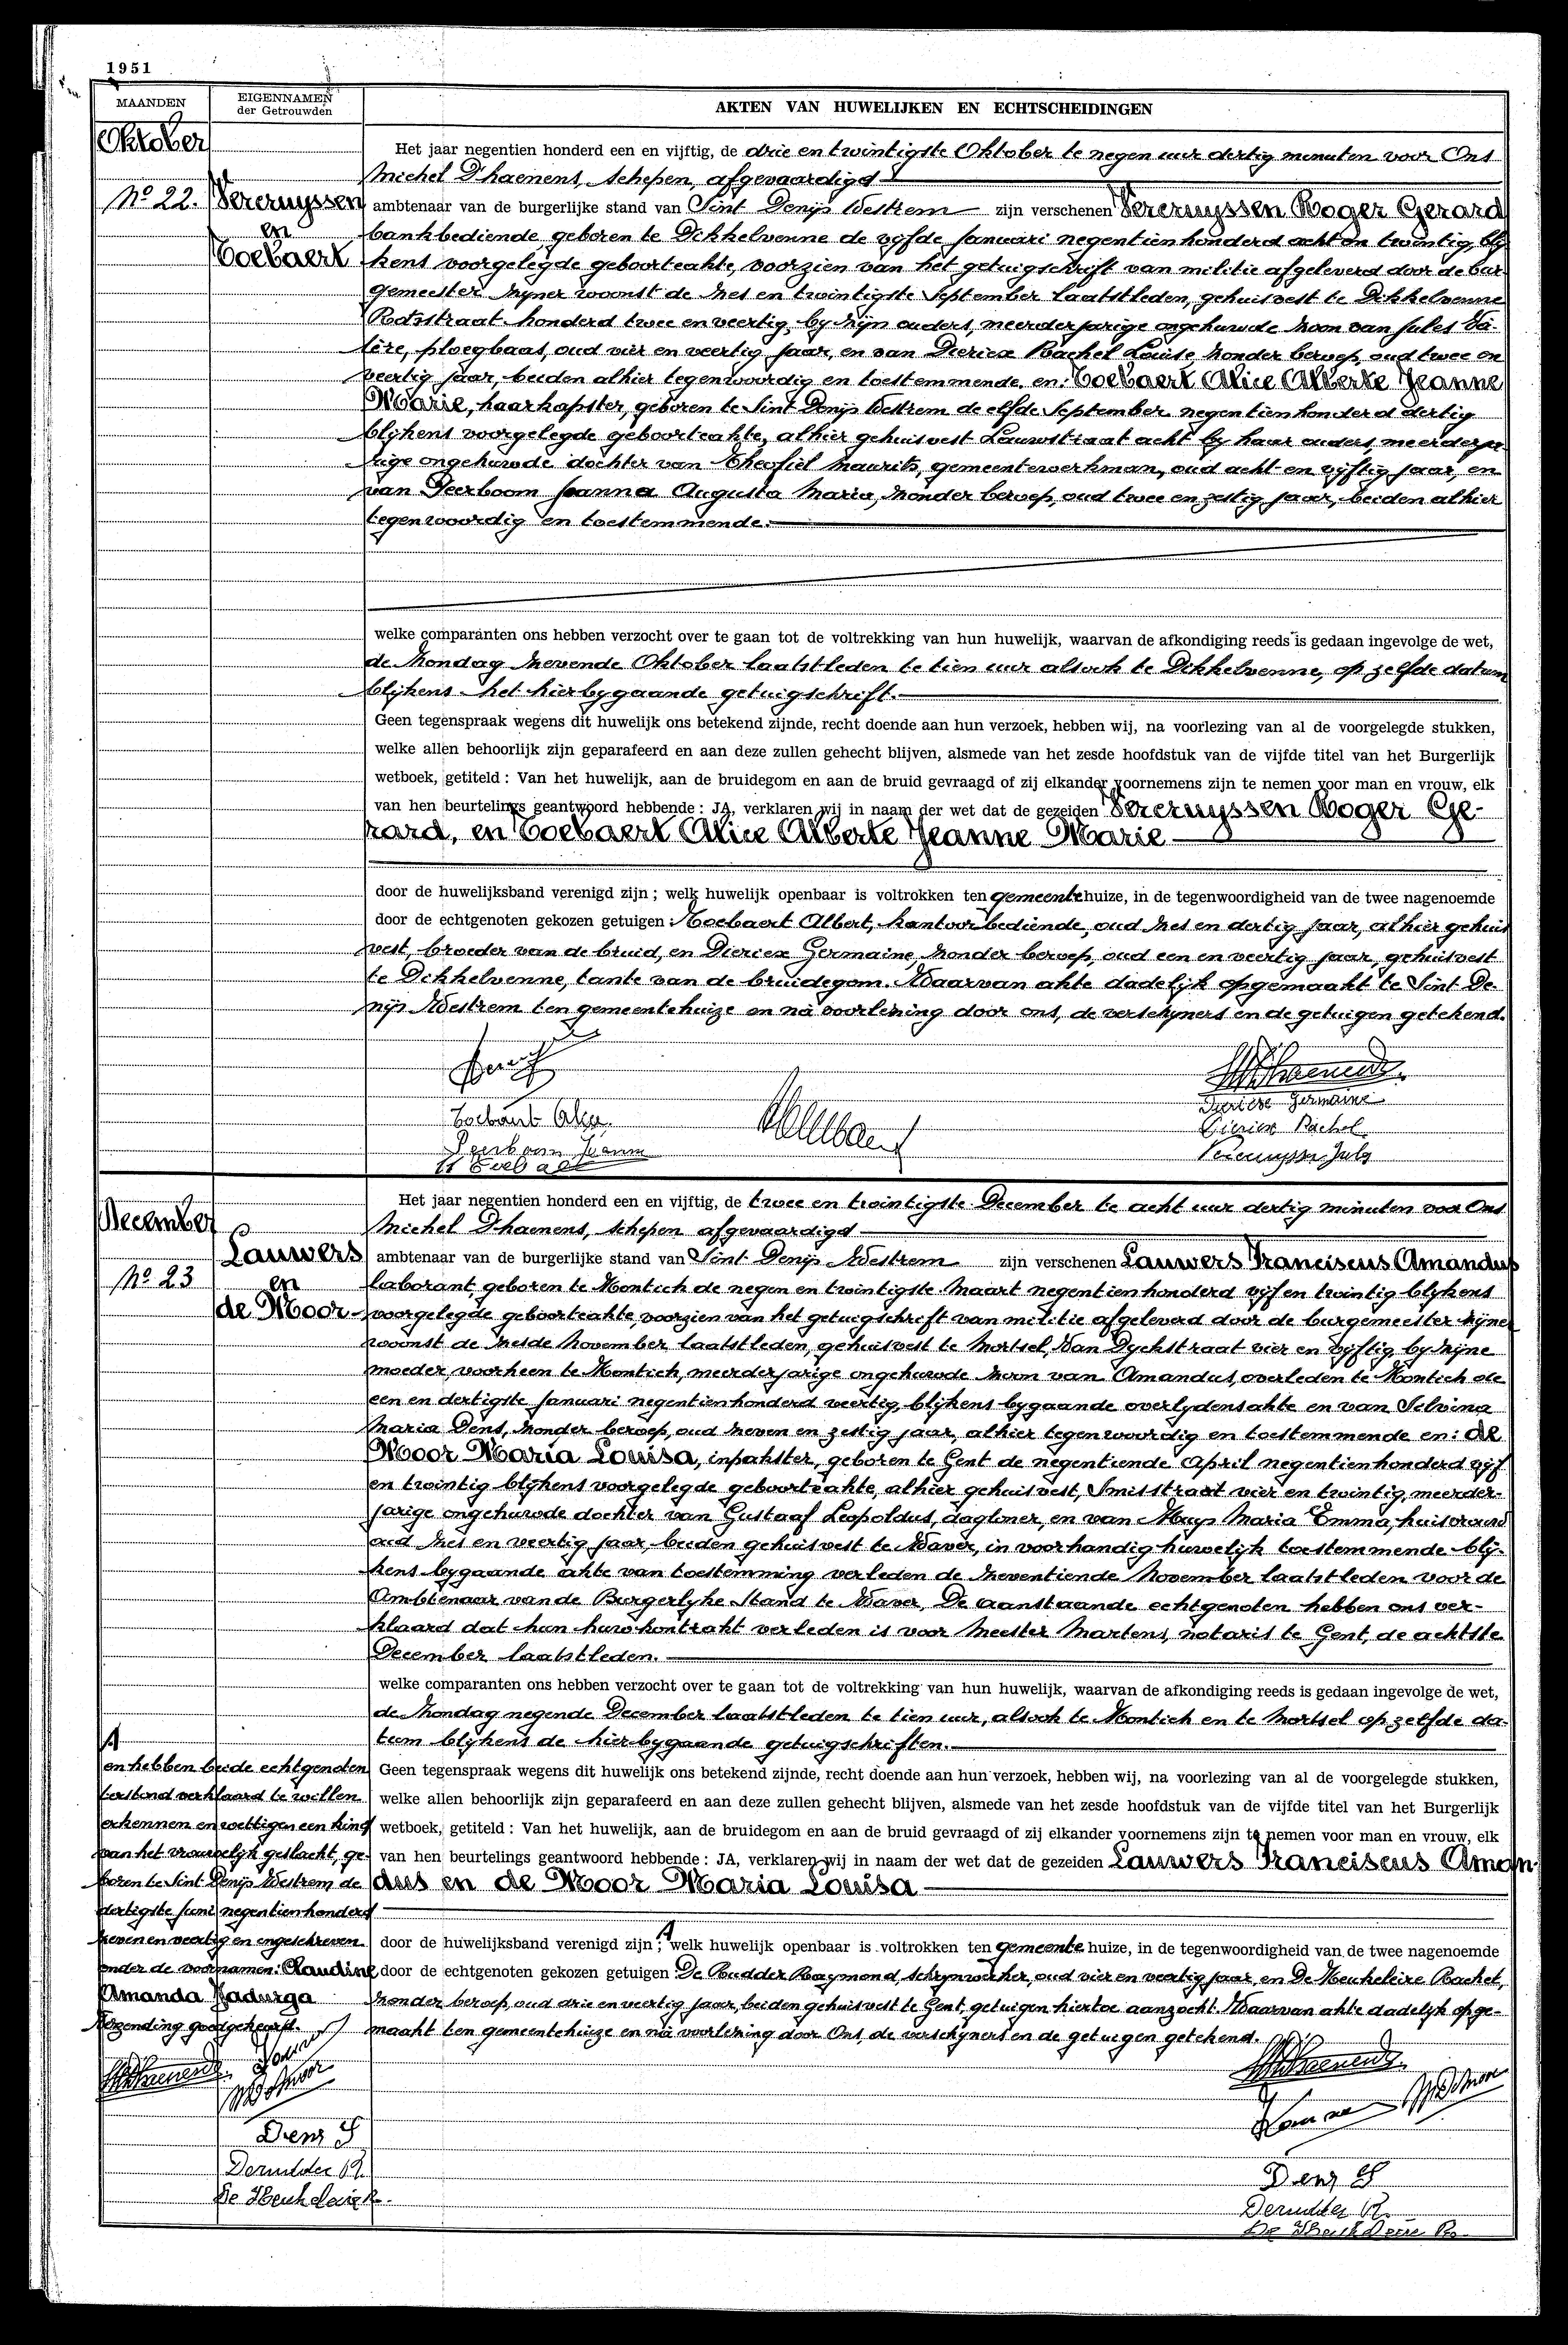 1951
MAANDEN
EIGENNAMEN
der Getrouwden
AKTEN VAN HUWELIJKEN EN ECHTSCHEIDINGEN
Oktober
Nº 22.
Vercruyssen
en
Coebaert
Het jaar negentien honderd een en vijftig, de drie en twintigste Oktober te negen uur dertig minuten voor Ons
Michel D'haenens, schepen, afgevaardigd
ambtenaar van de burgerlijke stand van Sint Denijs Westrem zijn verschenen Vercruyssen Roger Gerard
bankbediende, geboren te Dikkelvenne de vijfde Januari negentienhonderd acht en twintig, blij-
kens voorgelegde geboorteakte, voorzien van het getuigschrift van militie afgeleverd door de bur-
gemeester zijner woonst de zes en twintigste September laatstleden, gehuisvest te Dikkelvenne
straat honderd twee en veertig, bij zijn ouders, meerderjarige ongehuwde zoon van Jules Va-
lère, ploegbaas, oud vier en veertig jaar, en van Diericx Rachel Louise, zonder beroep, oud twee en
veertig jaar, beiden alhier tegenwoordig en toestemmende, en: Coebaert Alice Alberte Jeanne
Marie, haarkapster, geboren te Sint Denijs Westrem de elfde September negentienhonderd dertig
blijkens voorgelegde geboorteakte, alhier gehuisvest Lauwstraat acht bij haar ouders, meerderja-
rige ongehuwde dochter van Theofiel Maurits, gemeentewerkman, oud acht en vijftig jaar, en
van Peerboom Joanna Augusta Maria, zonder beroep, oud twee en zestig jaar, beiden alhier
tegenwoordig en toestemmende.
welke comparanten ons hebben verzocht over te gaan tot de voltrekking van hun huwelijk, waarvan de afkondiging reeds is gedaan ingevolge de wet,
de Zondag zevende Oktober laatstleden te tien uur alsook te Dikkelvenne, op zelfde datum
blijkens het hierbygaande getuigschrift.
Geen tegenspraak wegens dit huwelijk ons betekend zijnde, recht doende aan hun verzoek, hebben wij, na voorlezing van al de voorgelegde stukken,
welke allen behoorlijk zijn geparafeerd en aan deze zullen gehecht blijven, alsmede van het zesde hoofdstuk van de vijfde titel van het Burgerlijk
wetboek, getiteld : Van het huwelijk, aan de bruidegom en aan de bruid gevraagd of zij elkander voornemens zijn te nemen voor man en vrouw, elk
van hen beurtelings geantwoord hebbende : JA, verklaren wij in naam der wet dat de gezeiden Vercruyssen Roger Ge-
rard, en Coebaert Alice Alberte Jeanne Marie
door de huwelijksband verenigd zijn ; welk huwelijk openbaar is voltrokken ten gemeentehuize, in de tegenwoordigheid van de twee nagenoemde
door de echtgenoten gekozen getuigen : Coebaert Albert, kantoorbediende, oud zes en dertig jaar, alhier gehuis
vest, broeder van de bruid, en Diericx Germaine, zonder beroep, oud een en veertig jaar, gehuisvest
te Dikkelvenne, tante van de bruidegom. Waarvan akte dadelijk opgemaakt te Sint De-
nijs Westrem ten gemeentehuize en na voorlezing door ons, de verschijners en de getuigen getekend.
Diericx Germaine
Coebaert Alice
Diericx Rachel
Peerboom Joanna
Vercruyssen Jules
December
Nº 23
Lauwers
en
de Moor
Het jaar negentien honderd een en vijftig, de twee en twintigste December te acht uur dertig minuten voor Ons
Michel D'haenens, schepen afgevaardigd
ambtenaar van de burgerlijke stand van Sint Denijs Westrem zijn verschenen Lauwers Franciscus Amandus
laborant, geboren te Kontich de negen en twintigste Maart negentienhonderd vijf en twintig blijkens
voorgelegde geboorteakte voorzien van het getuigschrift van militie afgeleverd door de burgemeester zijner
woonst de zesde November laatstleden, gehuisvest te Mortsel, Van Dyckstraat vier en vijftig by zijne
moeder, voorheen te Kontich, meerderjarige ongehuwde zoon van Amandus, overleden te Kontich de
een en dertigste Januari negentienhonderd veertig, blijkens bygaande overlydensakte en van Selvina
Maria Dens, zonder beroep, oud zeven en zestig jaar, alhier tegenwoordig en toestemmende en: de
Moor Maria Louisa, inpakster, geboren te Gent de negentiende April negentienhonderd vijf
en twintig blijkens voorgelegde geboorteakte, alhier gehuisvest, Smisstraat vier en twintig, meerder-
jarige ongehuwde dochter van Gustaaf Leopoldus, dagloner, en van Muys Maria Emma, huisvrouw
oud zes en veertig jaar, beiden gehuisvest te Waver, in voorhandig huwelijk toestemmende blij-
kens bygaande akte van toestemming verleden de zeventiende November laatstleden voor de
Ambtenaar van de Burgerlyke Stand te Waver. De aanstaande echtgenoten hebben ons ver-
klaard dat hun huwkontrakt verleden is voor Meester Martens, notaris te Gent, de achtste
December laatstleden.
welke comparanten ons hebben verzocht over te gaan tot de voltrekking van hun huwelijk, waarvan de afkondiging reeds is gedaan ingevolge de wet,
de Zondag negende December laatstleden te tien uur, alsook te Kontich en te Mortsel op zelfde da-
tum blijkens de hierbygaande getuigschriften.
Geen tegenspraak wegens dit huwelijk ons betekend zijnde, recht doende aan hun verzoek, hebben wij, na voorlezing van al de voorgelegde stukken,
welke allen behoorlijk zijn geparafeerd en aan deze zullen gehecht blijven, alsmede van het zesde hoofdstuk van de vijfde titel van het Burgerlijk
wetboek, getiteld : Van het huwelijk, aan de bruidegom en aan de bruid gevraagd of zij elkander voornemens zijn te nemen voor man en vrouw, elk
van hen beurtelings geantwoord hebbende : JA, verklaren wij in naam der wet dat de gezeiden Lauwers Franciscus Aman-
dus en de Moor Maria Louisa
door de huwelijksband verenigd zijn ; A welk huwelijk openbaar is voltrokken ten gemeente huize, in de tegenwoordigheid van de twee nagenoemde
door de echtgenoten gekozen getuigen De Rudder Raymond, schrynwerker, oud vier en veertig jaar, en De Keukeleire Rachel,
zonder beroep, oud drie en veertig jaar, beiden gehuisvest te Gent, getuigen hiertoe aanzocht. Waarvan akte dadelyk opge-
maakt ten gemeentehuize en na voorlezing door Ons, de verschijners en de getuigen getekend.
A
en hebben beide echtgenoten
terstond verklaard te willen
erkennen en wettigen een kind
van het vrouwelyk geslacht, ge-
boren te Sint Denijs Westrem de
dertigste Juni negentienhonderd
zeven en veertig en ingeschreven
onder de voornamen: Claudine
Amanda Jadwiga
goedgekeurd.
Dens S
Derudder R.
De Keukeleire R.
Dens S
Derudder R.
De Keukeleire R.